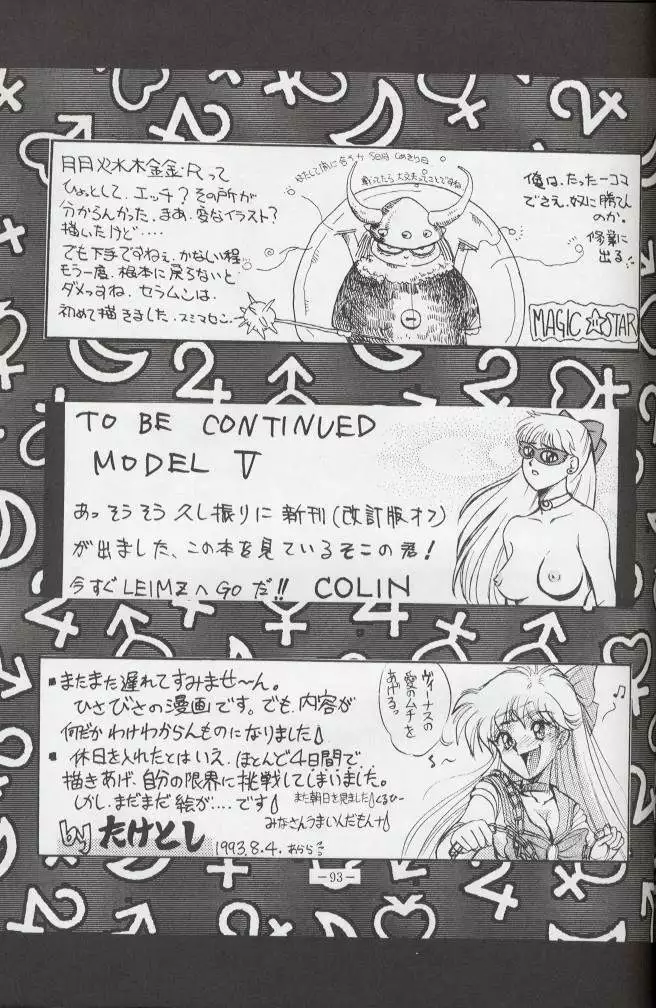 月月火水木金金・Rって
ひょっとして、エッチ？その所が
分からんかった、まあ、変なイラスト？
描いたけど‥‥
でも下手ですねぇ、かなしい程
もう一度、根本に戻らないと
ダメっすね、セラムンは、
初めて描きました、スミマセン、
戦ってたら大丈夫ってことですね
俺は、たった一コマ
でさえ、奴に勝てん
のか。
修業に
出る
MAGIC☆STAR
TO BE CONTINUED
MODEL V
あっそうそう久し振りに新刊(改訂版オフ)
が出ました、この本を見ているそこの君！
今すぐLEIMZへGoだ!! COLIN
■またまた遅れてすみませ〜ん。
ひさびさの漫画です。でも、内容が
何だかわけわからんものになりました♪
■休日を入れたとはいえ、ほとんど4日間で
描きあげ、自分の限界に挑戦してしまいました。
しかし、まだまだ絵が‥‥です♪
また朝日を見ました♪くるひー
みなさんうまいんだもんナ♪
by たけとし
1993.8.4.
ヴィーナスの
愛のムチを
あげるっ
♪
—93—